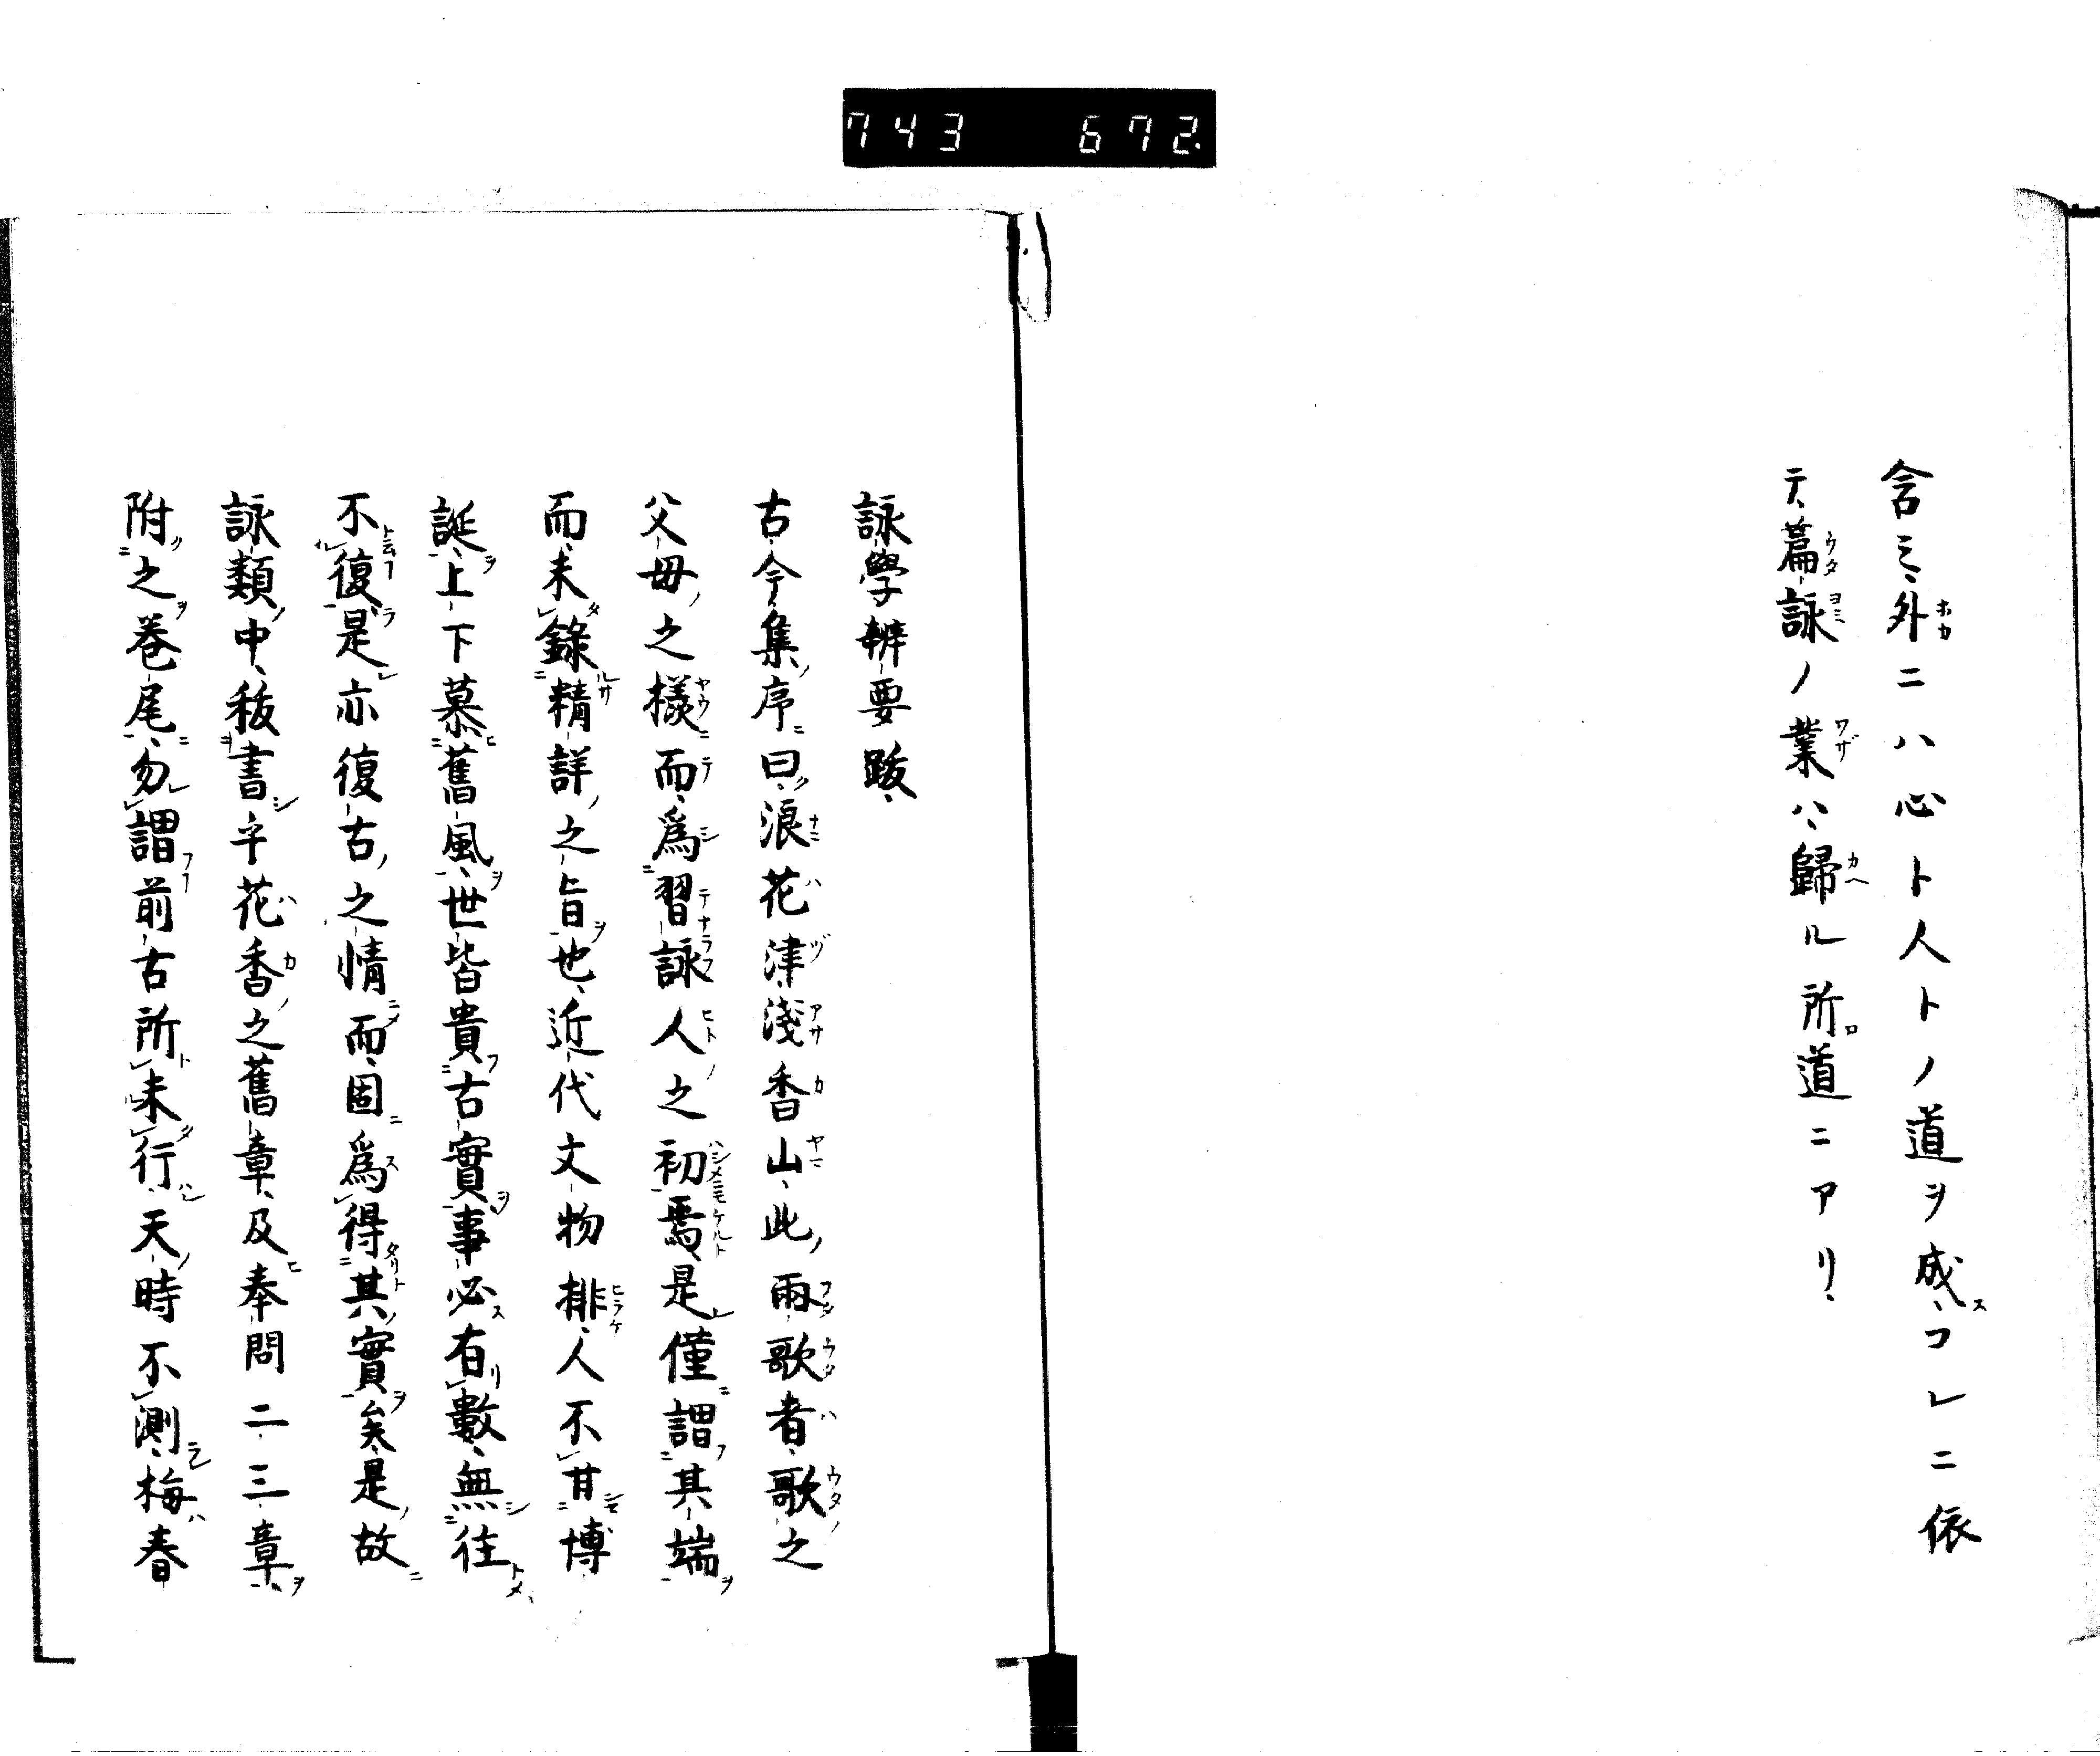 743 672
含ミ、外ニハ心ト人トノ道ヲ成、コレニ依
テ、篇詠ノ業ハ、歸ル所道ニアリ、
詠學辨要跋、
古今集序曰、浪花津淺香山、此兩歌者、歌之
父毋之樣而、爲習詠人之初焉、是僅謂其端
而、未錄精詳之旨也、近代文物排、人不甘博
誕、上下慕舊風、世皆貴古實、事必有數、無往
不復、是亦復古之情而、固爲得其實矣、是故
詠類中、秡書乎花香之舊章、及奉問二三章、
附之卷尾、勿謂前古所未行、天時不測、梅春